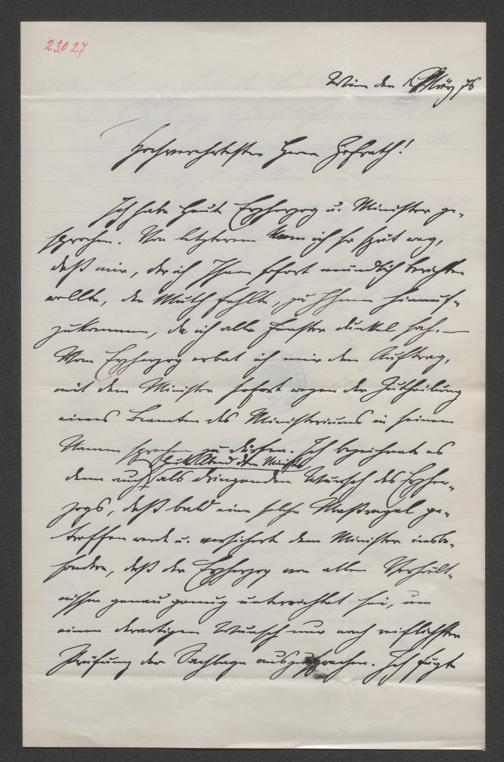 23027
Wien den 1. März 76
Hochverehrtester Herr Hofrath!
Ich habe heute Erzherzog u. Minister ge-
sprochen. Von letzterem kam ich so spät weg,
daß mir, der ich Ihnen sofort mündlich berichten
wollte, der Muth fehlte, zu Ihnen hinauf-
zukommen, da ich alle Fenster dunkel sah. –
Vom Erzherzog erbat ich mir den Auftrag,
mit dem Minister sofort wegen der Zutheilung
eines Beamten des Ministeriums in seinem
Namen sprechen zu dürfen. Ich bezeichnete es
heute Abend dem Minister
denn auch als dringenden Wunsch des Erzher-
zogs, daß bald eine solche Maßregel ge-
troffen werde u. versicherte dem Minister insbe-
sondere, daß der Erzherzog von allen Verhält-
nissen genau genug unterrichtet sei, um
einen derartigen Wunsch nur nach reiflichster
Prüfung der Sachlage auszusprechen. Ich fügte